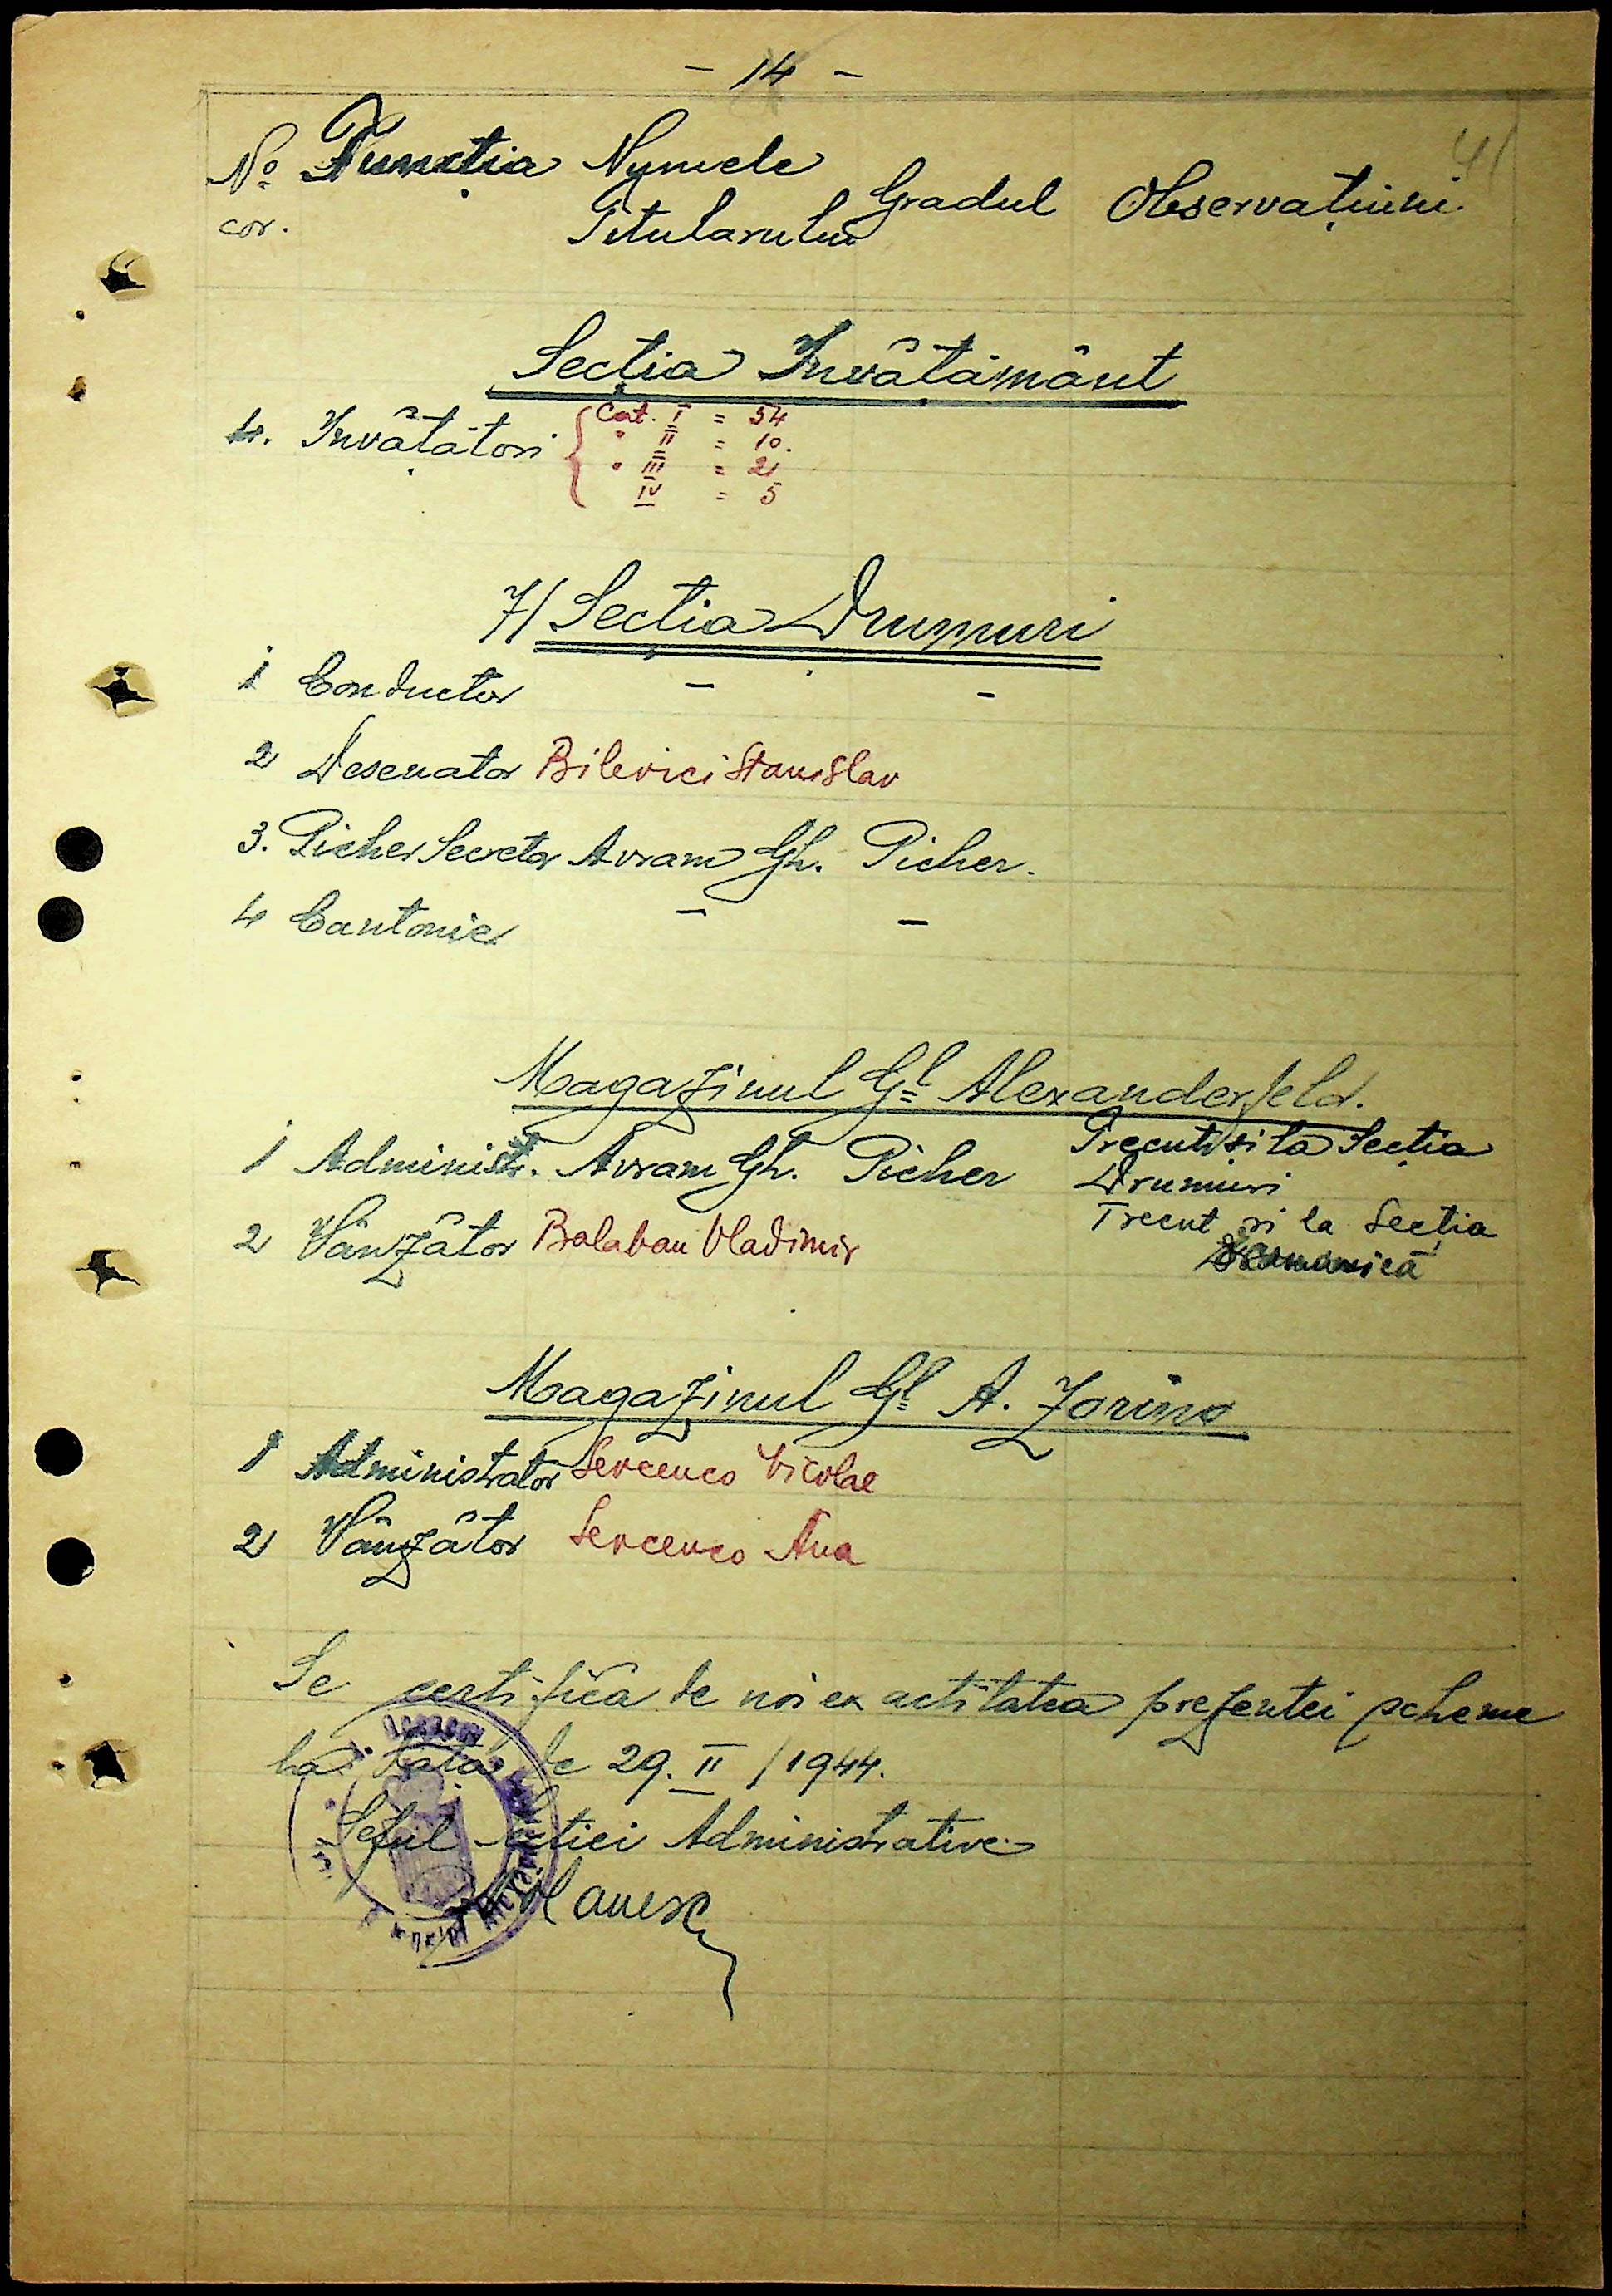 - 14 -
41
No Functia Numele Gradul Observaţiuni
cor. Titularului
Secţia Învătământ
4. Învăţători { Cat. I = 54
" II = 10.
" III = 2
IV = 5
7/ Secţia Drumuri
1 Conductor - -
2 Desenator Bilevici Stanislav
3. Picher Secretar Avram Gh. Picher.
4 Cantonier - -
Magazinul Gl Alexanderfeld.
1 Administr. Avram Gh. Picher Trecut şi la Secţia
Drumuri
2 Vânzător Balaban Vladimir Trecut şi la Secţia
Magazinul Gl A. Zorino
1 Administrator Sevcenco Nicolae
2 Vânzător Sevcenco Ana
Se certifică de noi exactitatea prezentei scheme
la data de 29. II / 1944.
Şeful Secţiei Administrative